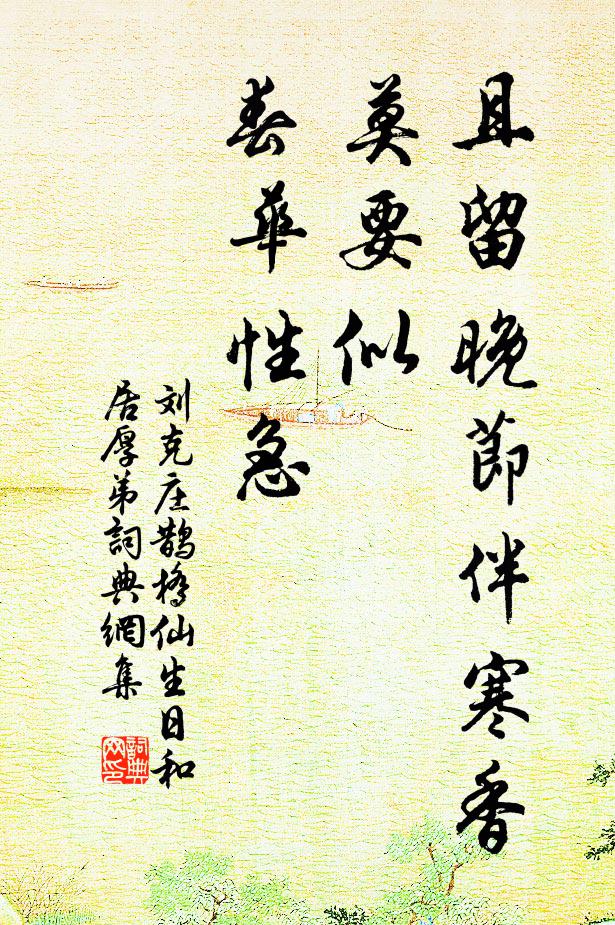 且留晚節伴寒香
莫要似
春華性急
刘克庄鹊橋仙生日和
居厚弟詞典網集
詞典
网印